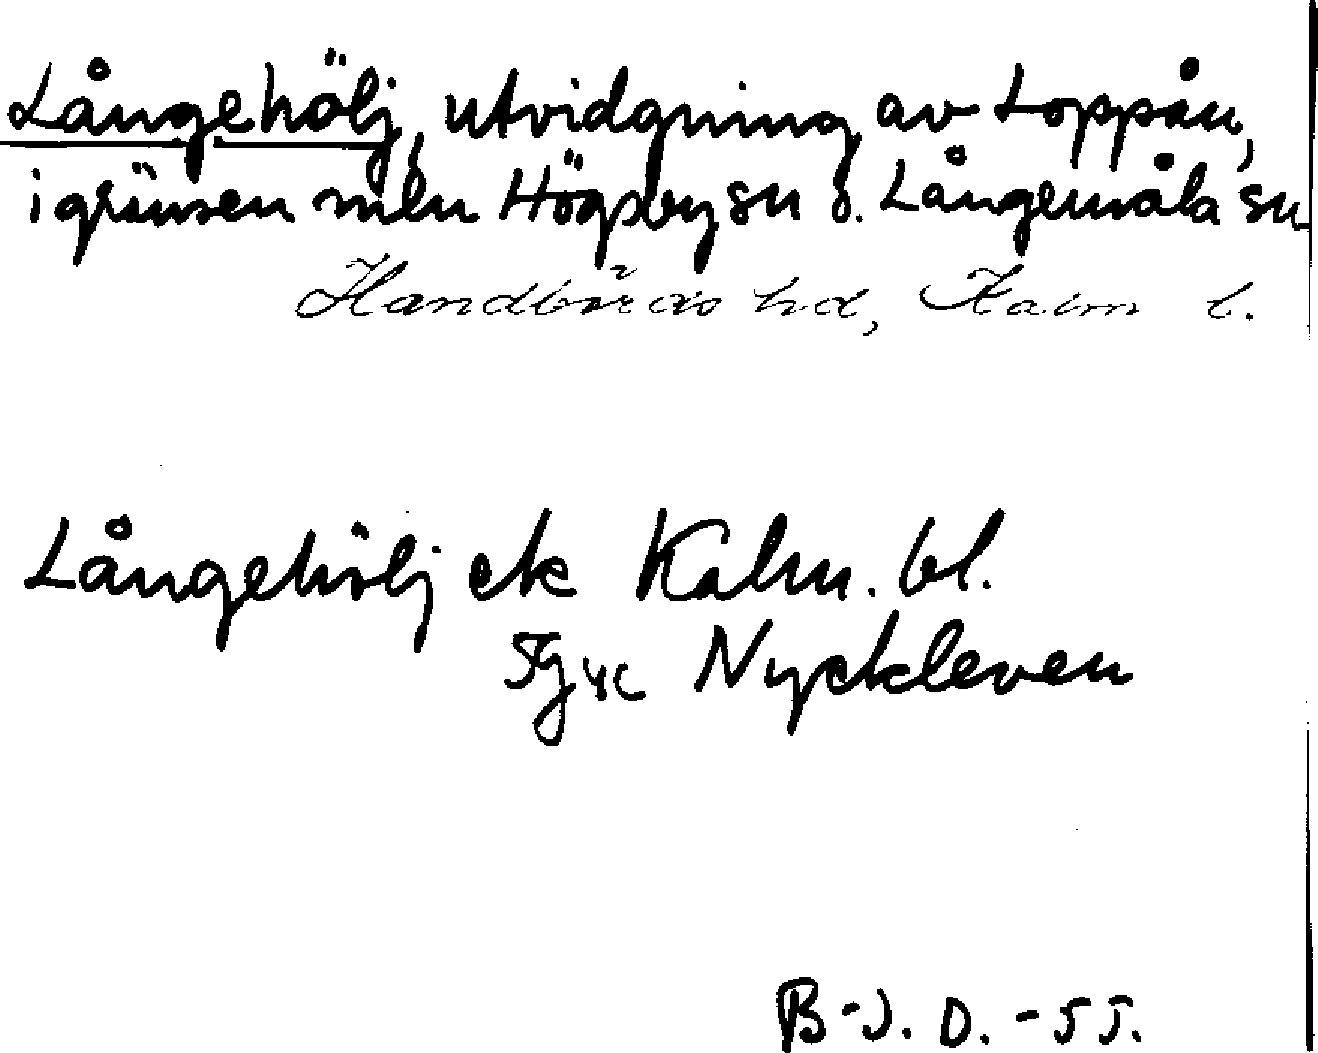 Långehölj, utvidgning av Loppån,
i gränsen mln Högsby sn o. Långemåla sn
Handbörds hd, Kalm l.
Långehölj ek Kalm. bl.
5g4c Nyckleven
B-J. D. -55.